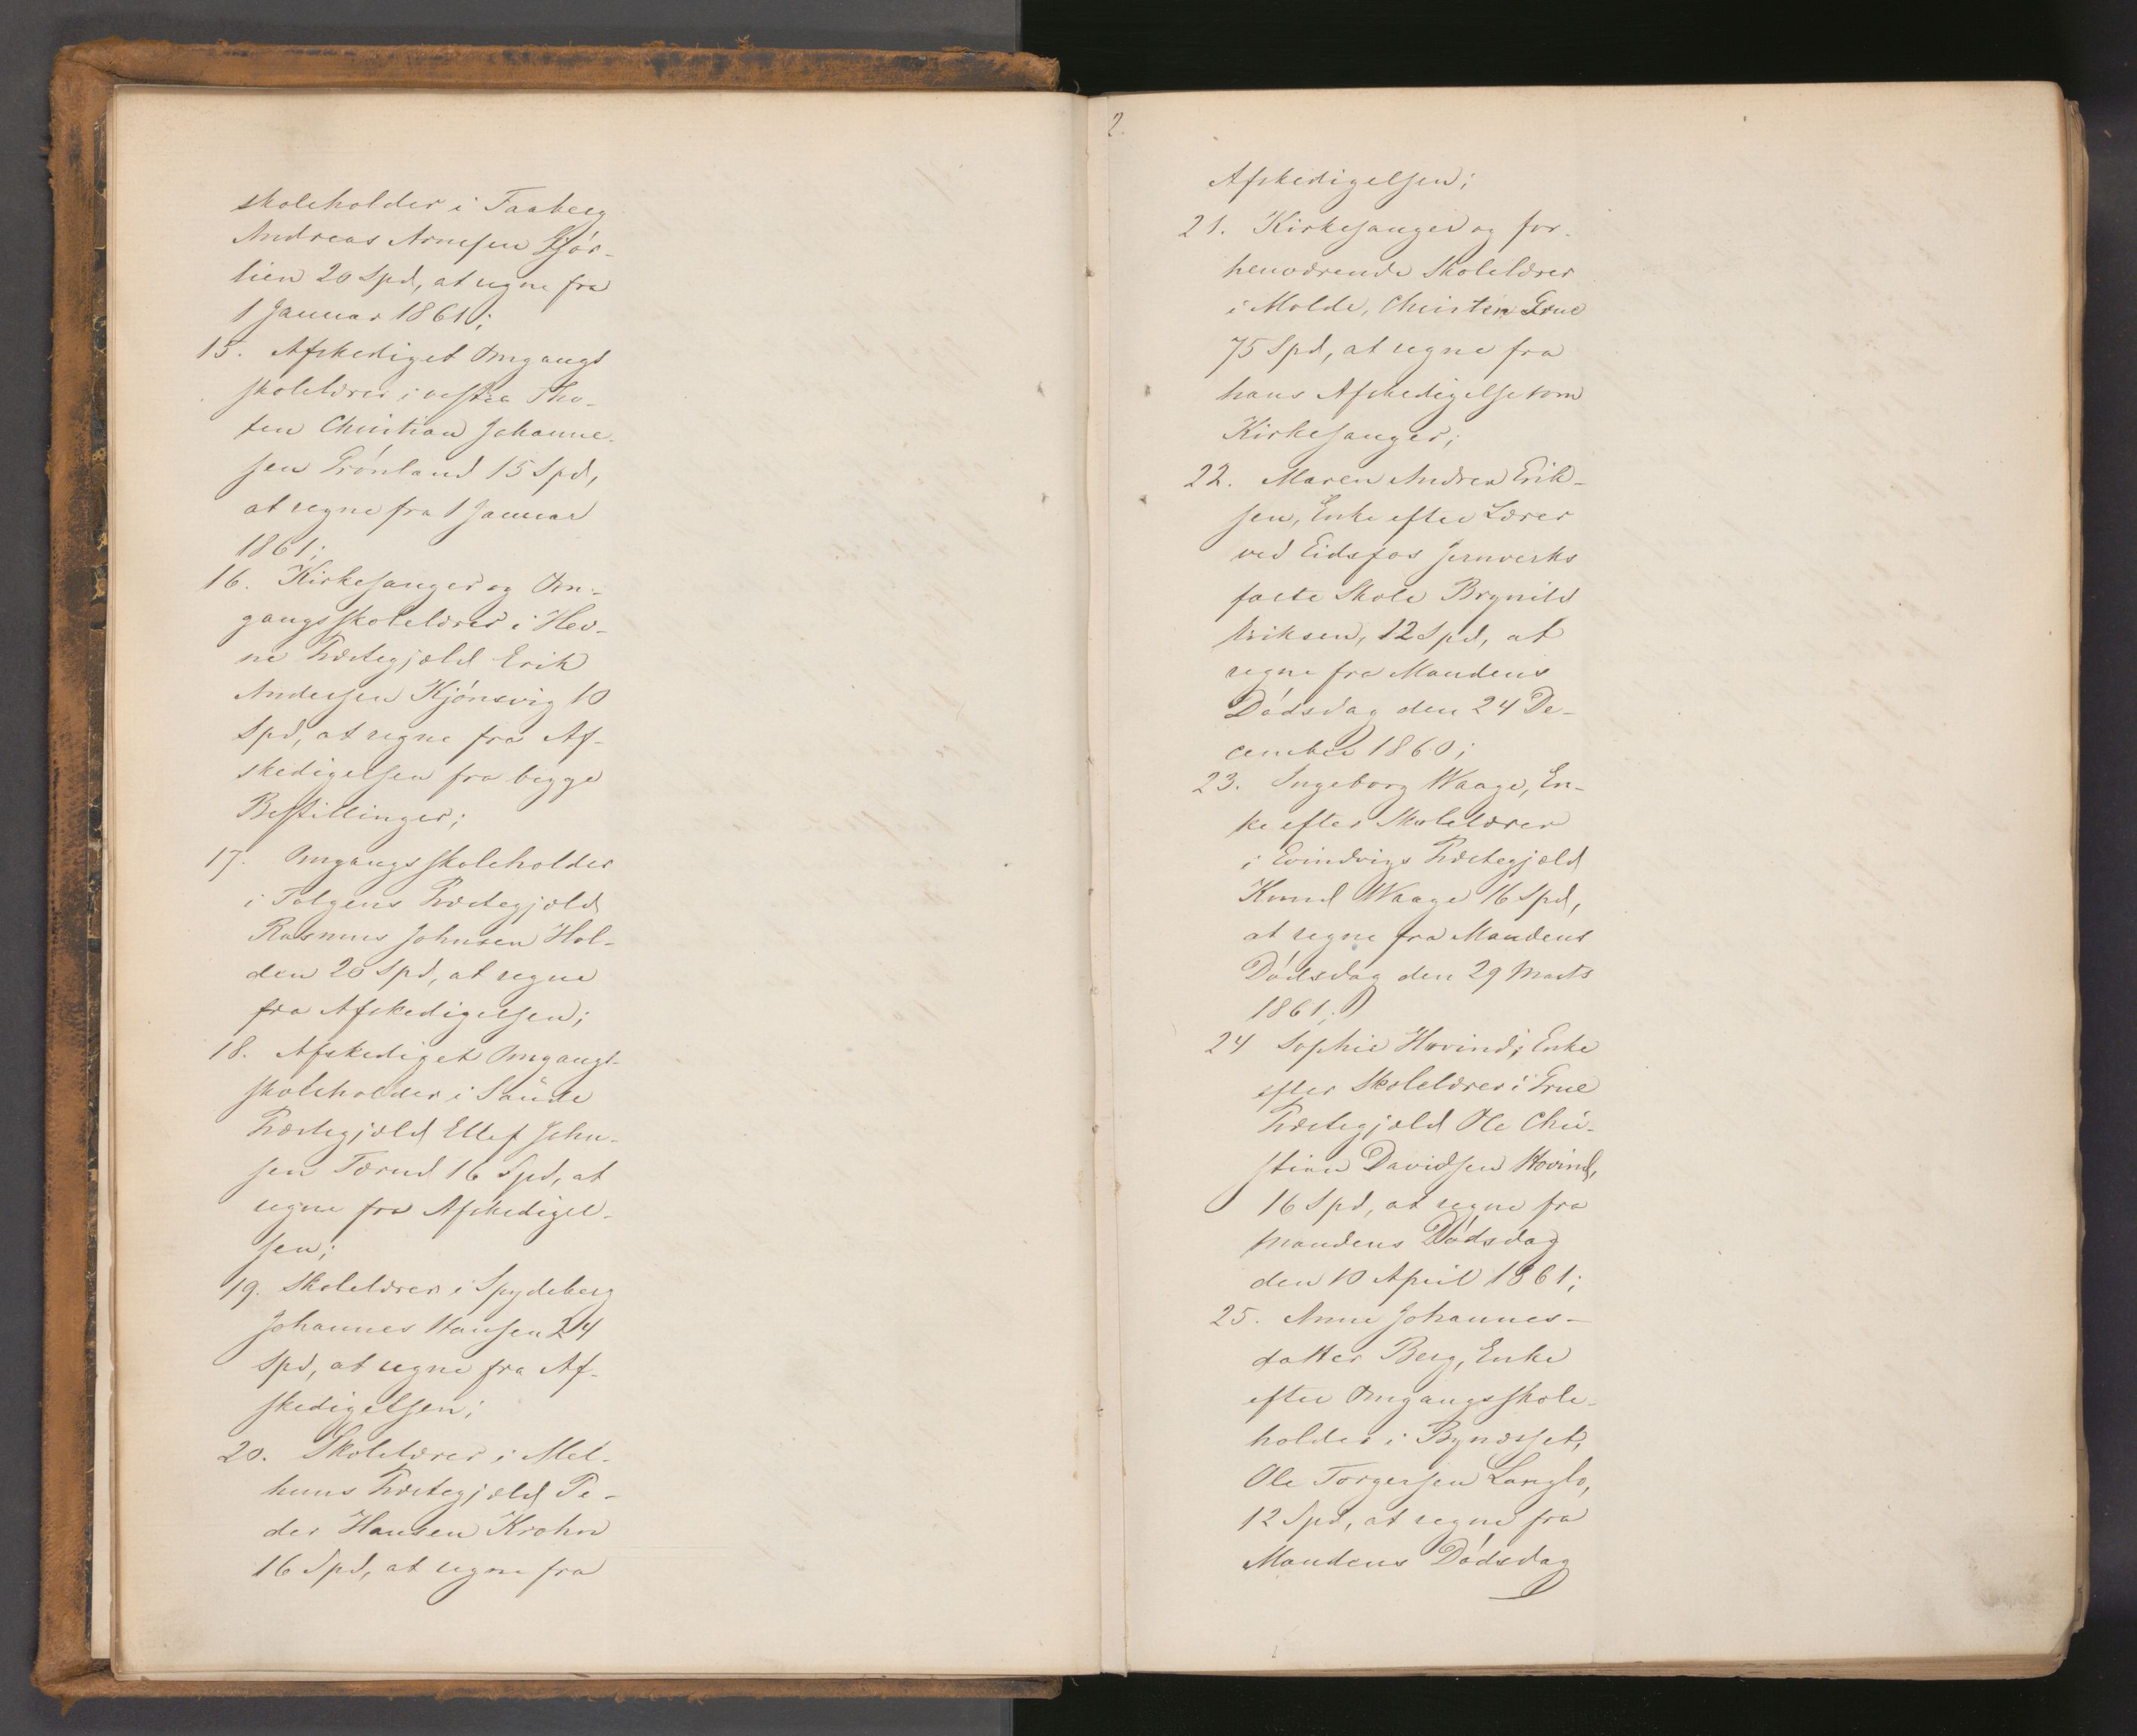 skoleholder i Faaberg
Andreas Arnesen
lien 20 Spd, at regne fra
1 Januar 1861;
15. Afskediget Omgangs
skolelærer i vestre Tho-
ten Christian Johanne-
sen Grönland 15 Spd,
at regne fra 1 Januar
1861;
16. Kirkesanger og Om-
gangsskolelærer i Hev-
ne Præstegjæld Erik
Andersen Kjönsvig 10
Spd, at regne fra Af-
skedigelsen fra begge
Bestillinger;
17. Omgangsskoleholder
i Tolgens Præstegjæld
Rasmus Johnsen Hol-
den 20 Spd, at regne
fra Afskedigelsen;
18. Afskediget Omgangs-
skoleholder i Saude
Præstegjæld Ellef John-
sen Tærud 16 Spd, at
regne fra Afskedigel-
sen;
19. Skolelærer i Spydeberg
Johannes Hansen 24
Spd, at regne fra Af-
skedigelsen;
20. Skolelærer i Mel-
huus Præstegjæld Pe-
der Hansen Krohn
16 Spd, at regne fra
2.
Afskedigelsen;
21. Kirkesanger og for-
henværende Skolelærer
i Molde, Christen Grue
75 Spd, at regne fra
hans Afskedigelse som
Kirkesanger;
22. Maren Andrea Erik-
sen, Enke efter Lærer
ved Eidsfos Jernverks
faste Skole Brynild
Eriksen, 12 Spd, at
regne fra Mandens
Dödsdag den 24 De-
cember 1860;
23. Ingeborg Waage, En-
ke efter Skolelærer
i Evindvigs Præstegjæld
Knud Waage 16 Spd,
at regne fra Mandens
Dödsdag den 29 Marts
1861;
24 Sophie Hovind, Enke
efter Skolelærer i Grue
Præstegjæld Ole Chri-
stian Davidsen Hovind,
16 Spd, at regne fra
Mandens Dödsdag
den 10 April 1861;
25. Anne Johannes-
datter Berg, Enke
efter Omgangsskole-
holder i Bynæsset,
Ole Torgersen Langlo,
12 Spd, at regne fra
Mandens Dödsdag